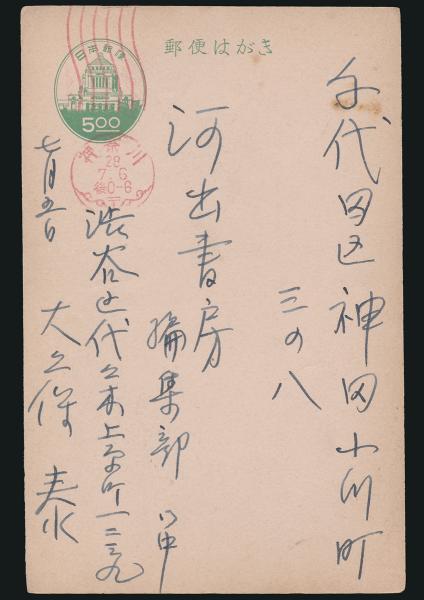 郵便はがき
日本郵便
5.00
28
7.6
後0-6
千代田区神田小川町
三の八
河出書房
編集部 御中
渋谷区代々木上原町一二三九
七月五日
大久保 泰